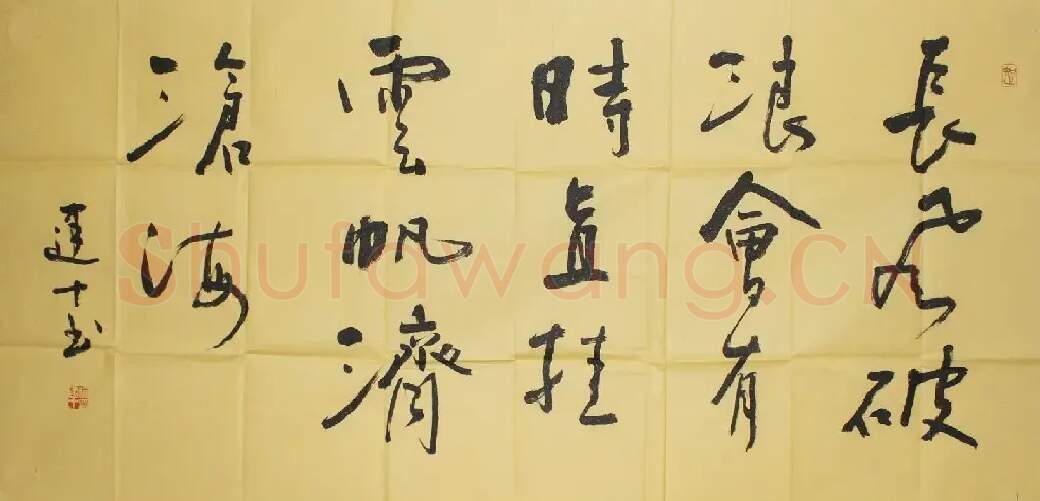 長風破
浪會有
時直挂
雲帆濟
滄海
十书
Shufawang.CN